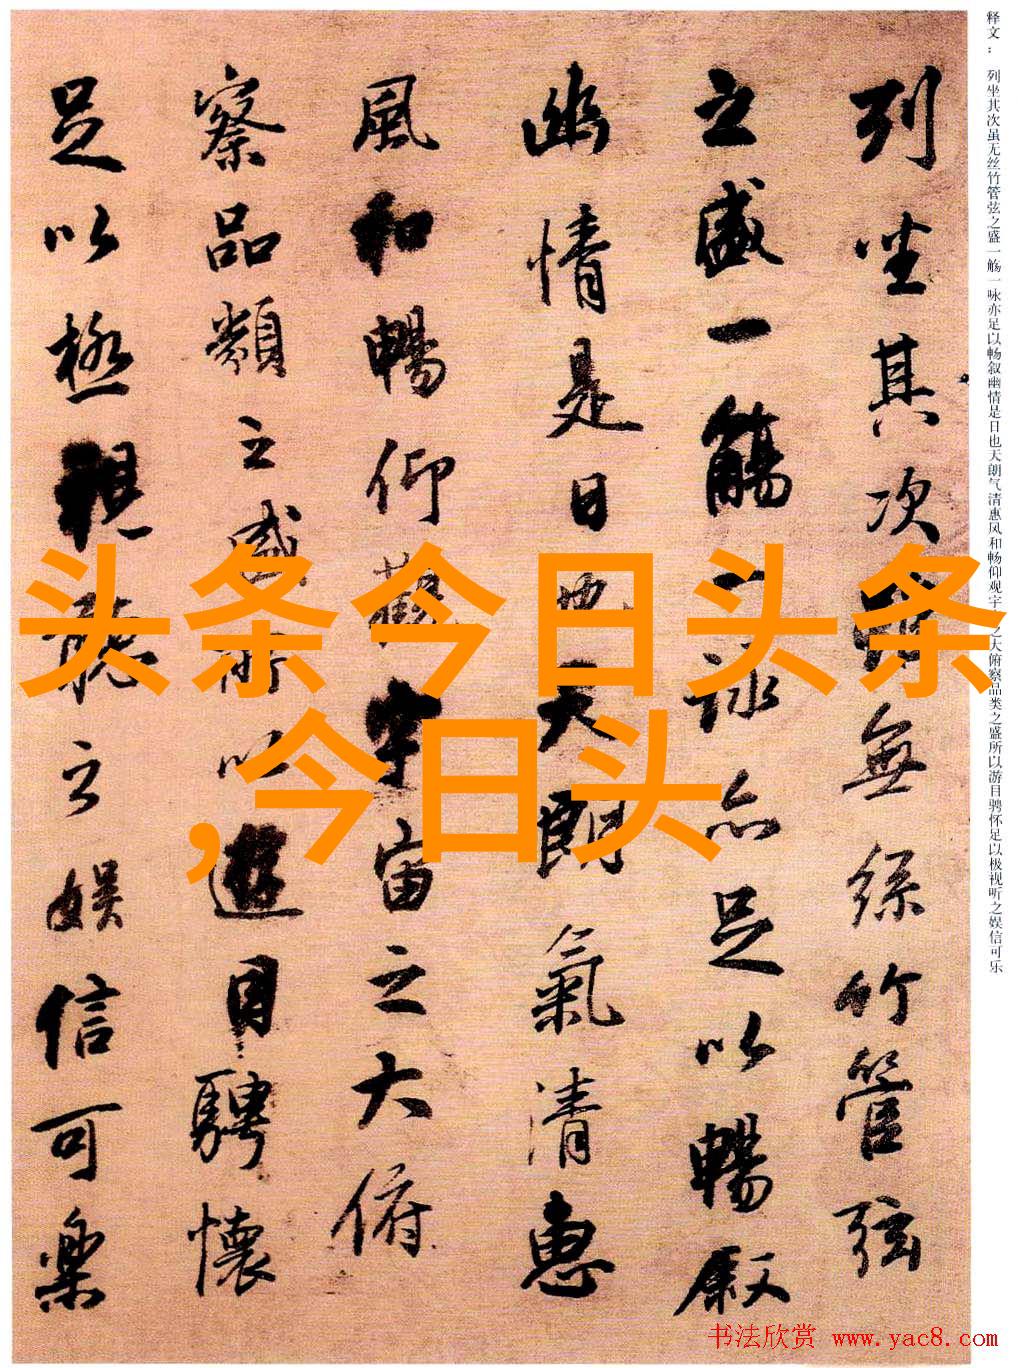 释文：列坐其次虽无丝竹管弦之盛一觞一咏亦足以畅叙幽情是日也天朗气清惠风和畅仰观宇之大俯察品类之盛所以游目骋怀足以极视听之娱信可乐
列坐其次雖無絲竹管弦
之盛一觴一詠亦足以暢敘
幽情是日也天朗氣清惠
風和暢仰觀宇宙之大俯
察品類之盛所以遊目騁懷
足以極視聽之娱信可樂
头条今日头条
,今日头
书法欣赏 www.yac8.com